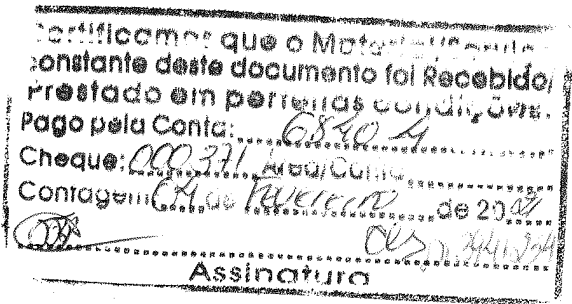 Certificamos que o Material/Serviço
constante deste documento foi Recebido/
Prestado em perfeitas condições.
Pago pela Conta: 6840 4
Cheque: 000.371 Área/Conta
Contagem 04 de Fevereiro de 20
Assinatura